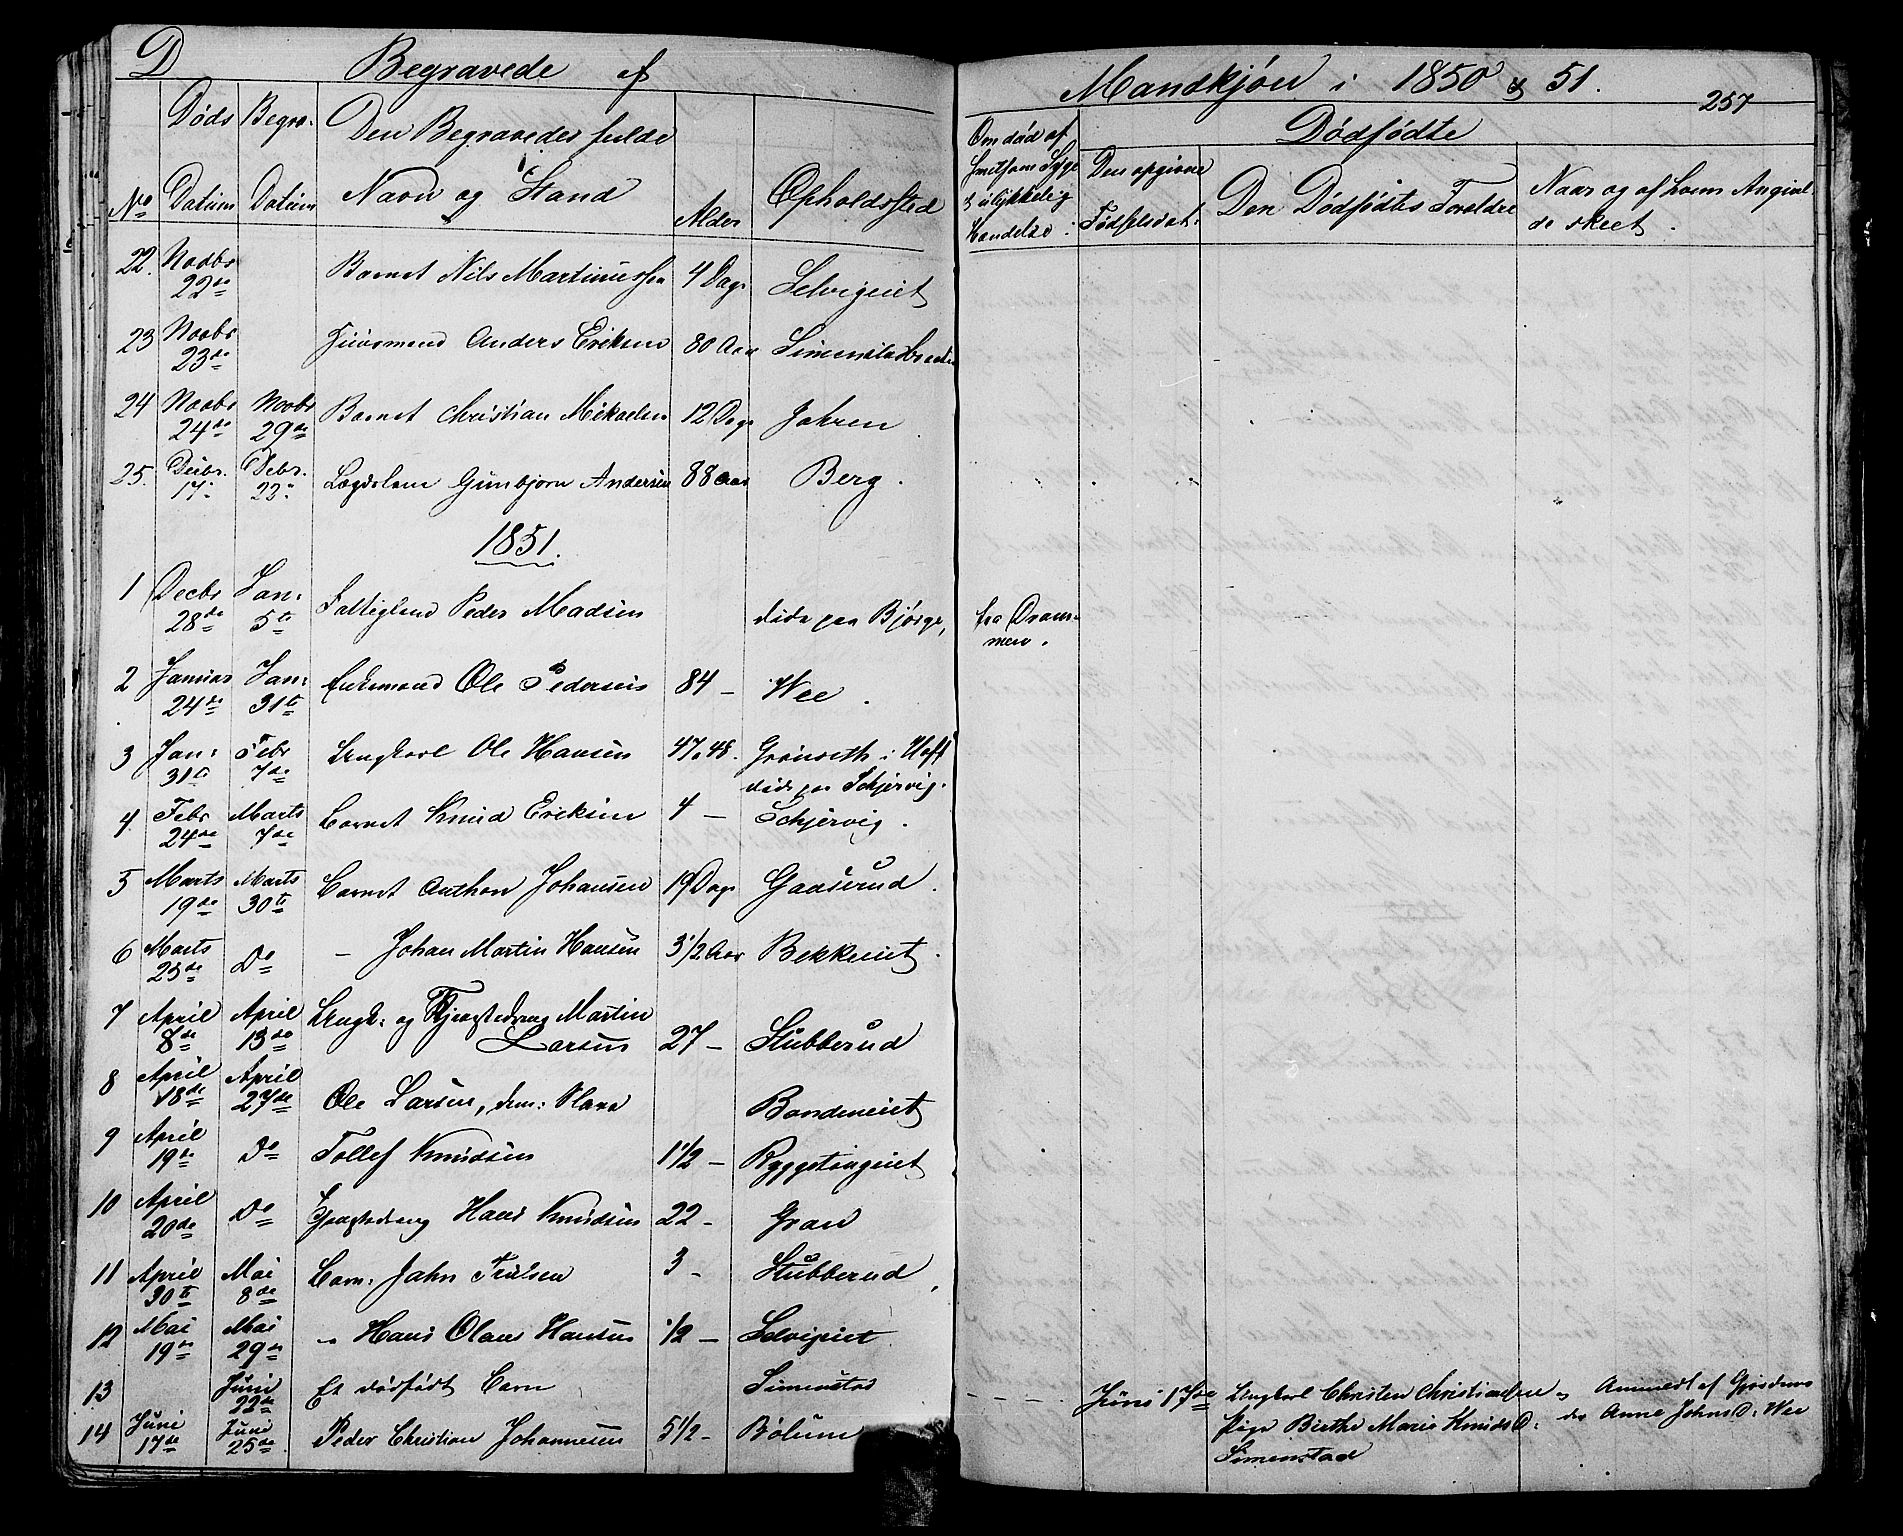 D Begravede af Mandkjøn i 1850 & 51. 257
Døds Begra- Den Begravedes fulde Om død af Dødfødte
No Datum Datum Navn og Stand Alder Opholdssted
smitsom Syge & ulykkelig Hændelse: Den opgivne Fødselsdat: Den Dødfødtes Forældre Naar og af hvem Angivelde skeet.
22. Novbr 22de Barnet Nils Martinussen 4 Dage Selvigeiet
23 Novbr 23de Anders Eriksen 80 Aar
24 Novbr 24de Novbr 29de Barnet Christian Mikaelsen 12 Dage Jahren
25. Decbr. 17 Debr. 22 Lægdslem Gunbjørn Andersen 88 Aar Berg.
1851.
1 Decbr 28de Jan: 5te Peder Madsen døde paa Bjørge, fra Drammen.
2 Januar 24de Jan: 31te Enkemand Ole Pedersen 84 – Wee.
3 Jan: 31te Febr 7de Ungkarl Ole Hansen 47 a 48. Grønseth i Hoff
døde paa Schjervig.
4. Febr 24de Marts 7de Barnet Knud Eriksen 4 – Schjervig.
5 Marts 19de Marts 30te Barnet Anthon Johansen 19 Dage Gaaserud.
6 Marts 25de Do – Johan Martin Hansen 3 1/2 Aar Bekkeeiet.
7 April 8de April 13de Ungk: og Martin
Larsen 27 – Stubberud
8 April 18de April 27de Ole Larsen,
9 April 19de Do Tollef Knudsen 1 1/2 – Ryggetangeiet
10 April 20de Do Hans Knudsen 22 – Gran
11 April 30te Mai 8de Barn: John Trulsen 3 – Stubberud
12 Mai 19de Mai 29de – Hans Olaus Hansen 1/2 – Selvigeiet
13 Juni 22de Et dødfødt Barn Simenstad – – – Juni 17de Ungkarl Christen Christiansen og Anmeldt af
Pige Berthe Marie Knudsd: Anne Johnsd: Wee
Simenstad
14 Juni 17de Juni 25de Peder Christian Johannesen 5 1/2 – Bølum